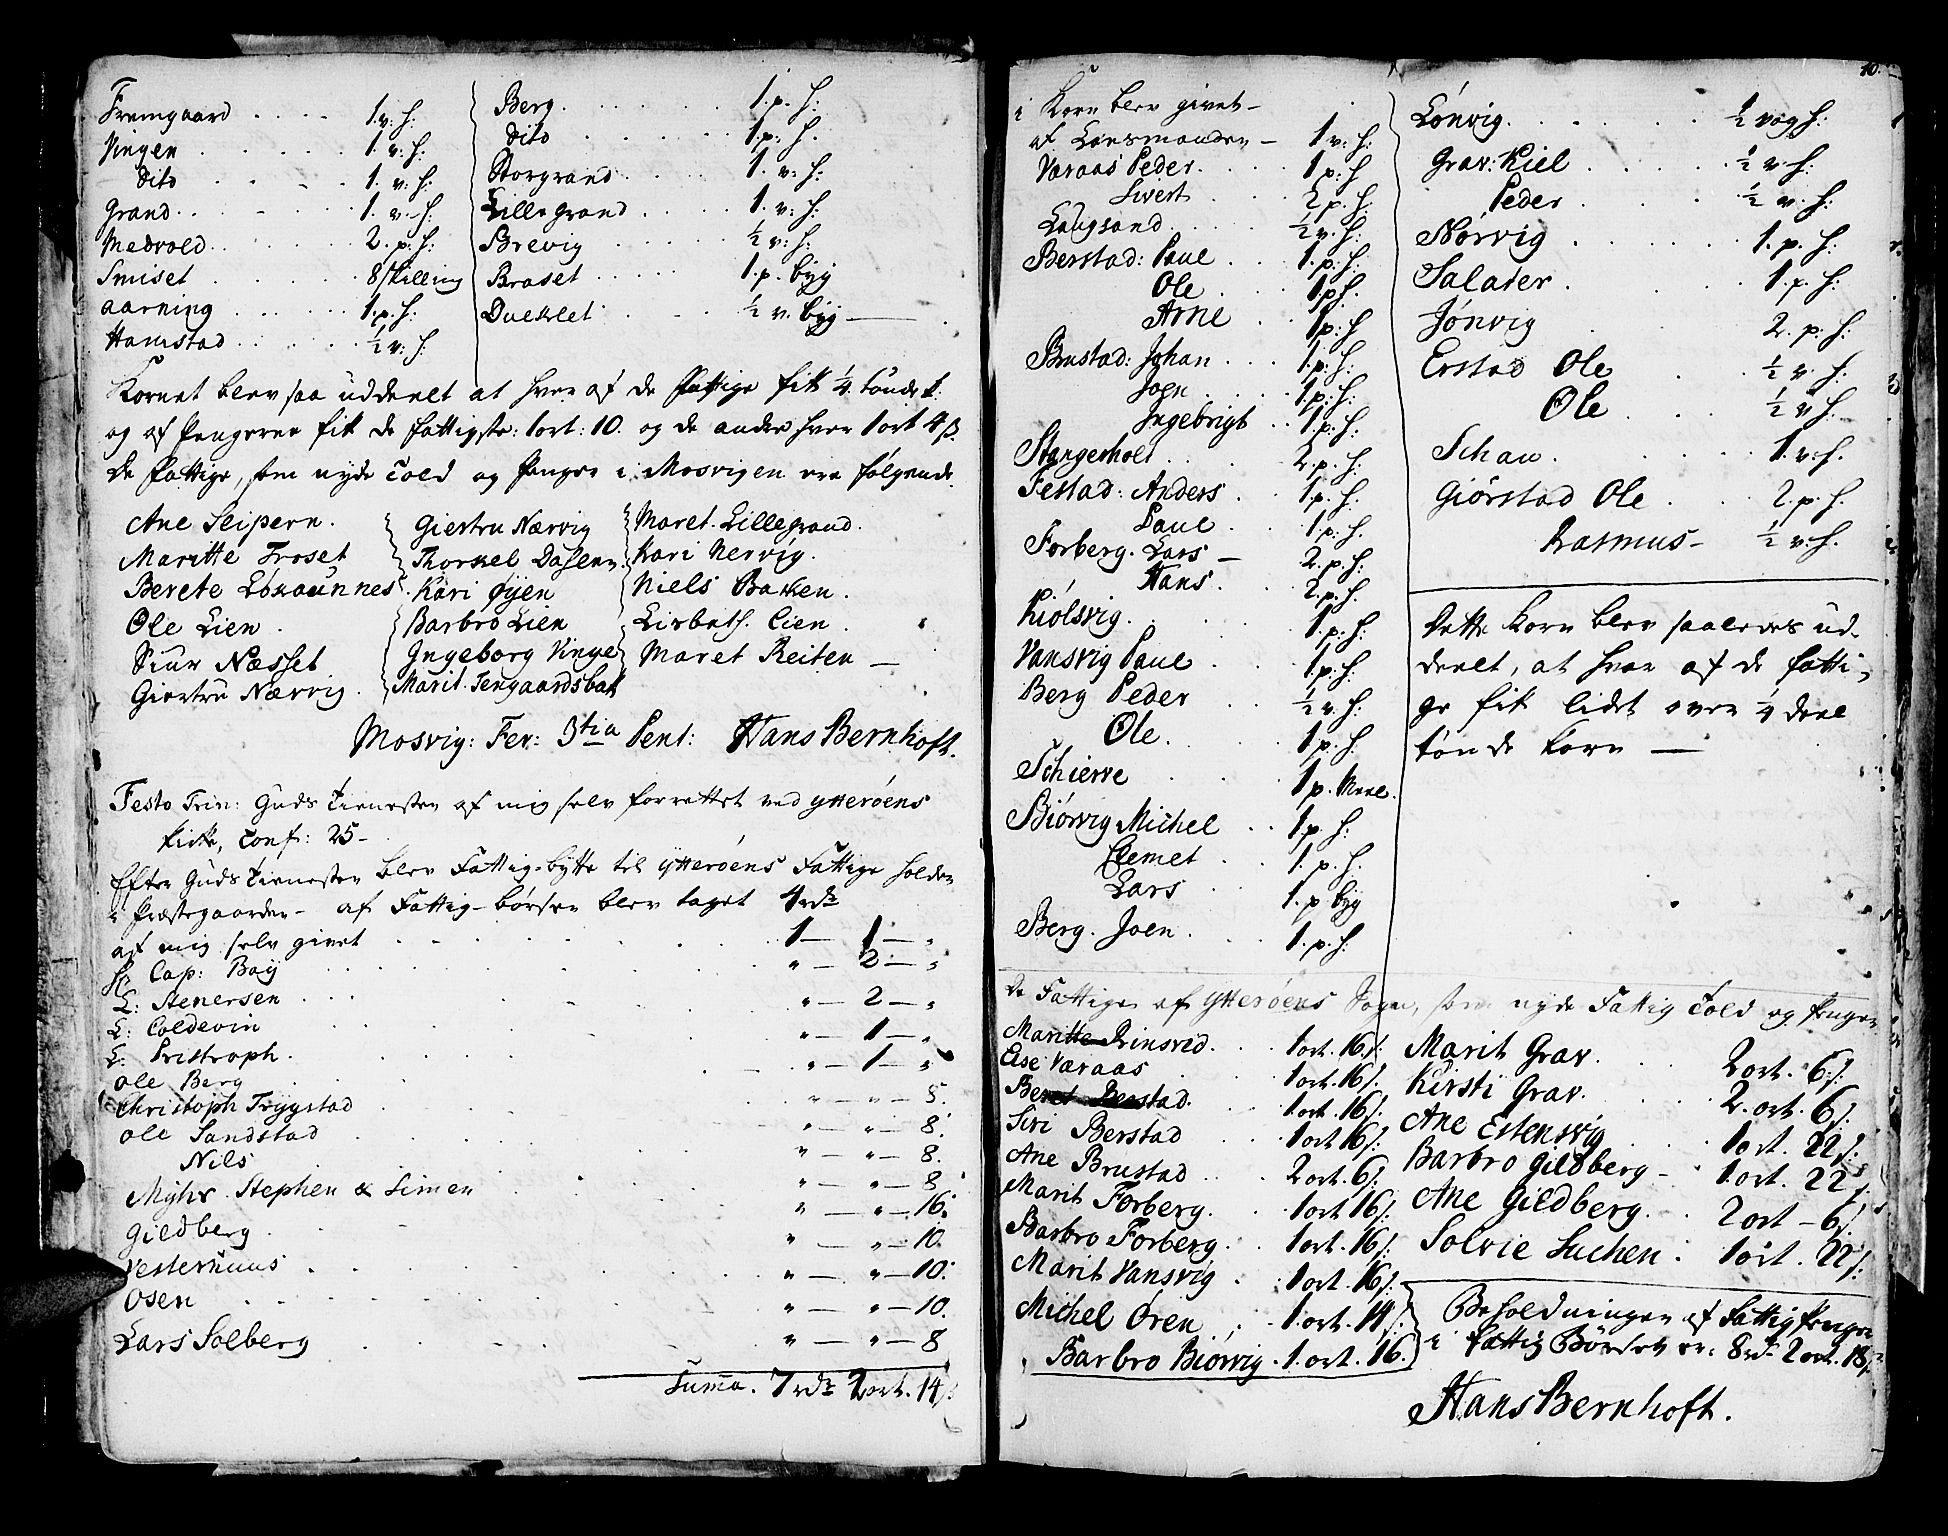 Fremgaard . . . . 1. v: h:
Vingen . . . . 1. v: h:
Dito . . . . 1. v: h:
Grand . . . . 1. v. h:
Medvold . . . . 2. p. h:
Smiset . . . . 8 skilling
Aarning . . . . 1. p. h:
Hamstad . . . . ½ v: h:
Berg . . . . 1. p. h:
Dito . . . . 1. p: h.
Storgrand . . . . 1. v: h:
Lillegrand . . . . 1. v: h:
Brevig . . . . ½ v: h:
Braset . . . . 1. p. byg
Dueklet . . . . ½ v. byg
Kornet blev saa uddeelt at hver af de fattige fik ¼ tønde k.
og af Pengerne fik de fattigste: 1 ort: 10. og de andre hver 1 ort 4 ß.
De fattige, som nyde Told og Penger i Mosvigen ere følgende
Ane Seipern.
Maritte Froset
Berete
Ole Lien.
Siur Næsset
Giertru Nærvig.
Giertru Nærvig
Thorkel Dahlen
Kari Øyen
Barbro Lien
Ingeborg Vinge
Marit Tengaardsbak
Maret Lillegrand.
Kari Nervig.
Niels Bakken.
Lisbeth Lien.
Maret Reiten
Mosvig: Fer: 3tia Pent: Hans Bernhoft.
Festo Trin: Guds Tienesten af mig selv forrettet ved Ytterøens
Kirke, Conf: 25 -
Efter Guds Tienesten blev Fattig-bytte til Ytterøens Fattige holden
i Præstegaarden - af Fattig-børsen blev taget 4 rdr
af mig selv givet . . . . 1 — 1 — „
Hr. Cap: Bay . . . . „ — 2 — „
L: Stenersen . . . . „ — 2 — „
L: Coldevin . . . . „ — 1 — „
L: Pristroph . . . . „ — 1 — „
Ole Berg . . . . „ — „ — 5.
Christoph Trygstad . . . . „ — „ — 8.
Ole Sandstad . . . . „ — „ — 8.
Nils . . . . „ — „ — 8
Myhr Stephen & Simen . . . . „ — „ — 16.
Gieldberg . . . . „ — „ — 10.
Vesterhuus . . . . „ — „ — 10.
Osen . . . . „ — „ — 10.
Lars Solberg . . . . „ — „ — 8
Suma. 7 rdr 2 ort. 14 ß
10.
i Korn blev givet -
af Lensmanden - 1 v: h:
Varaas Peder . . . . 1 p: h
Sivert . . . . 2 p. h:
Langsand . . . . ½ v. h:
Berstad: Paul . . 1. p: h:
Ole . . 1 p h.
Arne . . 1 p: h
Brustad: Johan . . . 1. p: h:
Joen . . . 1. p: h:
Ingebrigt . . 1. p: h:
Stangerholt . . . . 2. p. h:
Festad: Anders . . 1. p. h:
Paul . . 1. p. h.
Forberg. Lars - 2. p. h:
Hans . . 2. p: h.
Kiølsvig . . . . 1. p: h:
Vansvig Paul . . 1. p. h:
Berg Peder . . ½ v. h:
Ole . . 1. p. h:
Schierve . . . . 1 p. Meel.
Biørvig Michel . . 1. p. h:
Clemet . . 1. p. h.
Lars . . 1. p byg
Berg. Joen . . 1. p. h:
Lønvig . . . . ½ vog h:
Grav: Kiel . . . . ½ v. h:
Peder . . . . ½ v. h:
Nørvig . . . . 1. p. h:
Salater . . . . 1. p. h:
Jønvig . . . . 2. p. h:
Erstad Ole . . ½ v. h:
Ole . . ½ v h.
Schau . . . . 1. v. h.
Giørstad Ole . . 2. p. h:
Rasmus - ½ v: h.
Dette Korn blev saaledes ud-
deelt, at hver af de fatti-
ge fik lidet over ¼ deel
tønde Korn —
De Fattige af Ytterøens Sogn, som nyde Fattig Told og Penger
Maritte Rinsved . . . 1 ort. 16 ß.
Else Varaas . . . 1 ort. 16 ß.
Beret Berstad . . . 1 ort. 16 ß.
Siri Berstad . . . 1 ort 16 ß.
Ane Brustad . . . 2 ort. 6 ß.
Marit Forberg . . 1 ort 16 ß.
Barbro Forberg . . 1 ort. 16 ß.
Marit Vansvig . . 1 ort. 16 ß.
Michel Øren . . 1 ort. 14 ß.
Barbro Biørvig . 1. ort. 16.
Marit Grav . . . 2 ort. 6 ß.
Kirsti Grav . . . 2. ort. 6 ß.
Ane Estensvig . . . 1 ort. 22 ß.
Barbro Gieldberg - 1 ort. 22 ß
Ane Gieldberg . . 2 ort - 6 ß
Solvie Suchen . 1 ort. 22 ß.
Beholdningen af Fattig Penger
i Fattig Børsen er: 8 rdr. 2 ort. 18 ß
Hans Bernhoft.